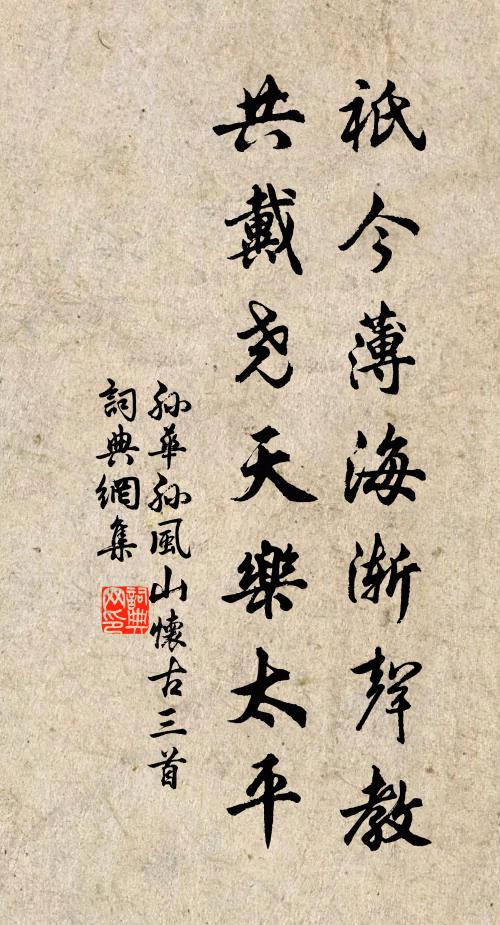 祇今薄海漸聲教
共戴尧天樂太平
孙華孙風山懷古三首
詞典網集
詞典网印